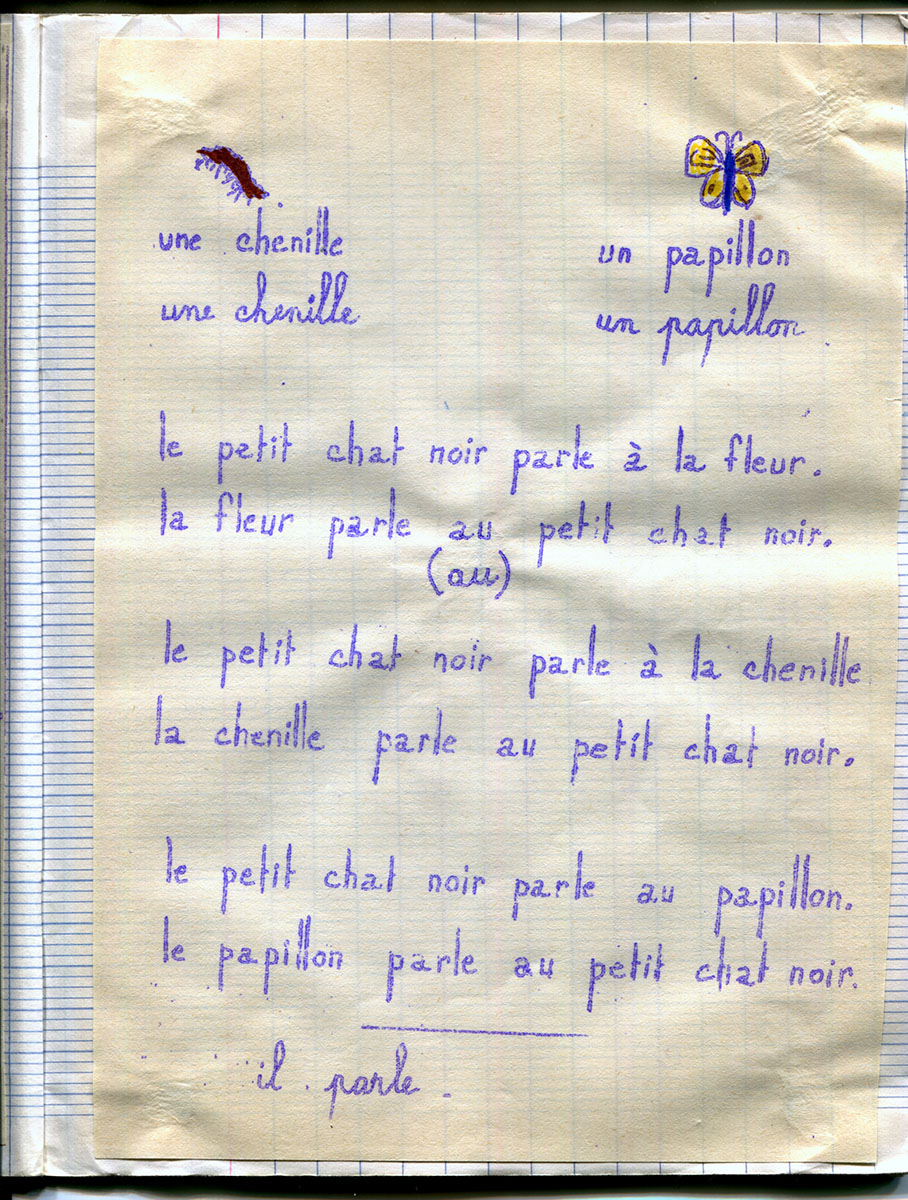 une chenille
un papillon
une chenille
un papillon
le petit chat noir parle à la fleur.
la fleur parle au petit chat noir.
(au)
le petit chat noir parle à la chenille
la chenille parle au petit chat noir.
le petit chat noir parle au papillon.
le papillon parle au petit chat noir.
il parle.